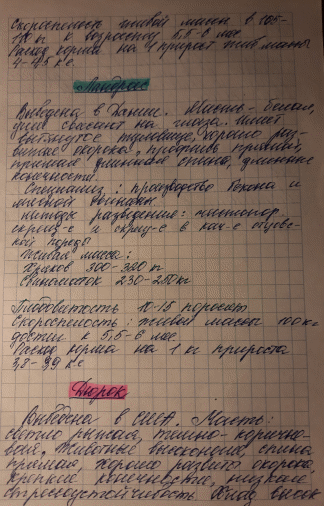 Скороспелость живой массы в 105-
110 кг к возрасту 5,5-6 мес.
Расход корма на 1 прирост жив массы
4-4,5 к.е
Ландрас
Выведена в Дании. Масть - белая,
уши свисают на глаза. Имеет
вытянутое туловище, хорошо раз-
витые окорока, профиль прямой,
прямая длинная спина, длинные
конечности.
Специализ: производство бекона и
мясной свинины
методы разведения: чистопор
скрещ-е и скрещ-е в кач-е отцовс-
кой породы
Живая масса:
Хряков 300-320 кг
Свиноматок 230-250 кг
Плодовитость 10-15 поросят
Скороспелость: живой массы 100 кг
достиг к 5,5-6 мес.
Расход корма на 1 кг прироста
3,8-3,9 к.е
Дюрок
Выведена в США. Масть:
светло рыжая, темно-коричне-
вая. Животные высокие, спина
прямая, хорошо развит окорока,
крепкие конечности, низкая
стрессоустойчивость